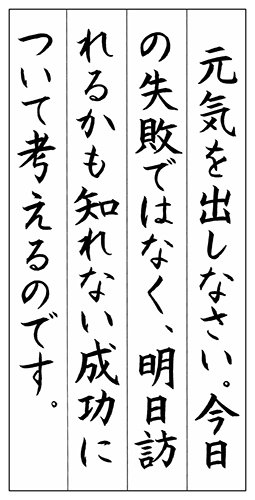 元気を出しなさい。今日
の失敗ではなく、明日訪
れるかも知れない成功に
ついて考えるのです。